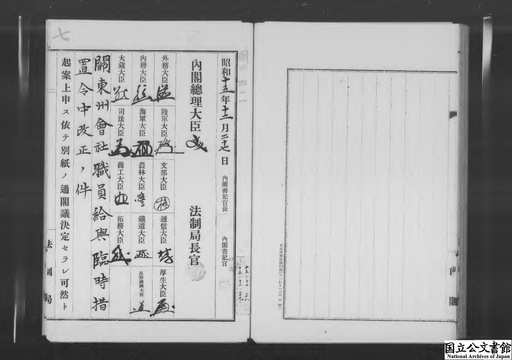 昭和十五年十二月二十七日
内閣書記官長
内閣書記官
内閣總理大臣
法制局長官
外務大臣
陸軍大臣
文部大臣
遞信大臣
厚生大臣
内務大臣
海軍大臣
農林大臣
鐵道大臣
大蔵大臣
司法大臣
商工大臣
拓務大臣
關東州會社職員給與臨時措
置令中改正ノ件
起案上申ス依テ別紙ノ通閣議決定セラレ可然ト
法制局
七
国立公文書館
National Archives of Japan